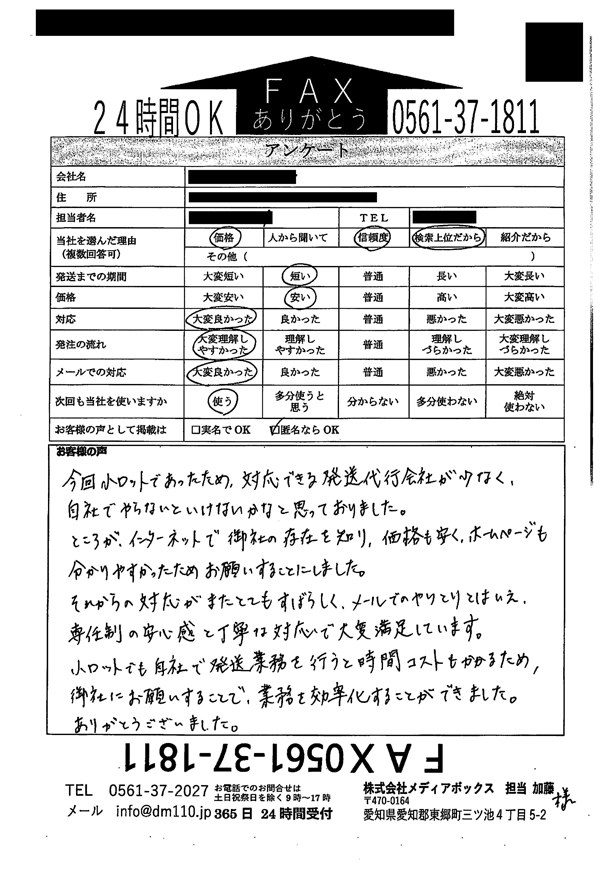 FAX
ありがとう
24時間OK 0561-37-1811
アンケート
会社名
住 所
担当者名 TEL
当社を選んだ理由（複数回答可） 価格 人から聞いて 信頼度 検索上位だから 紹介だから
その他（ ）
発送までの期間 大変短い 短い 普通 長い 大変長い
価格 大変安い 安い 普通 高い 大変高い
対応 大変良かった 良かった 普通 悪かった 大変悪かった
発注の流れ 大変理解しやすかった 理解しやすかった 普通 理解しづらかった 大変理解しづらかった
メールでの対応 大変良かった 良かった 普通 悪かった 大変悪かった
次回も当社を使いますか 使う 多分使うと思う 分からない 多分使わない 絶対使わない
お客様の声として掲載は □実名でOK ☑匿名ならOK
お客様の声
今回小ロットであったため、対応できる発送代行会社が少なく、
自社でやらないといけないかなと思っておりました。
ところが、インターネットで御社の存在を知り、価格も安く、ホームページも
分かりやすかったためお願いすることにしました。
それからの対応がまたとてもすばらしく、メールでのやりとりとはいえ、
専任制の安心感と丁寧な対応で大変満足しています。
小ロットでも自社で発送業務を行うと時間コストもかかるため、
御社にお願いすることで、業務を効率化することができました。
ありがとうございました。
FAX0561-37-1811
TEL 0561-37-2027 お電話でのお問合せは
土日祝祭日を除く9時～17時
メール info@dm110.jp 365日 24時間受付
株式会社メディアボックス 担当 加藤 様
〒470-0164
愛知県愛知郡東郷町三ツ池4丁目5-2